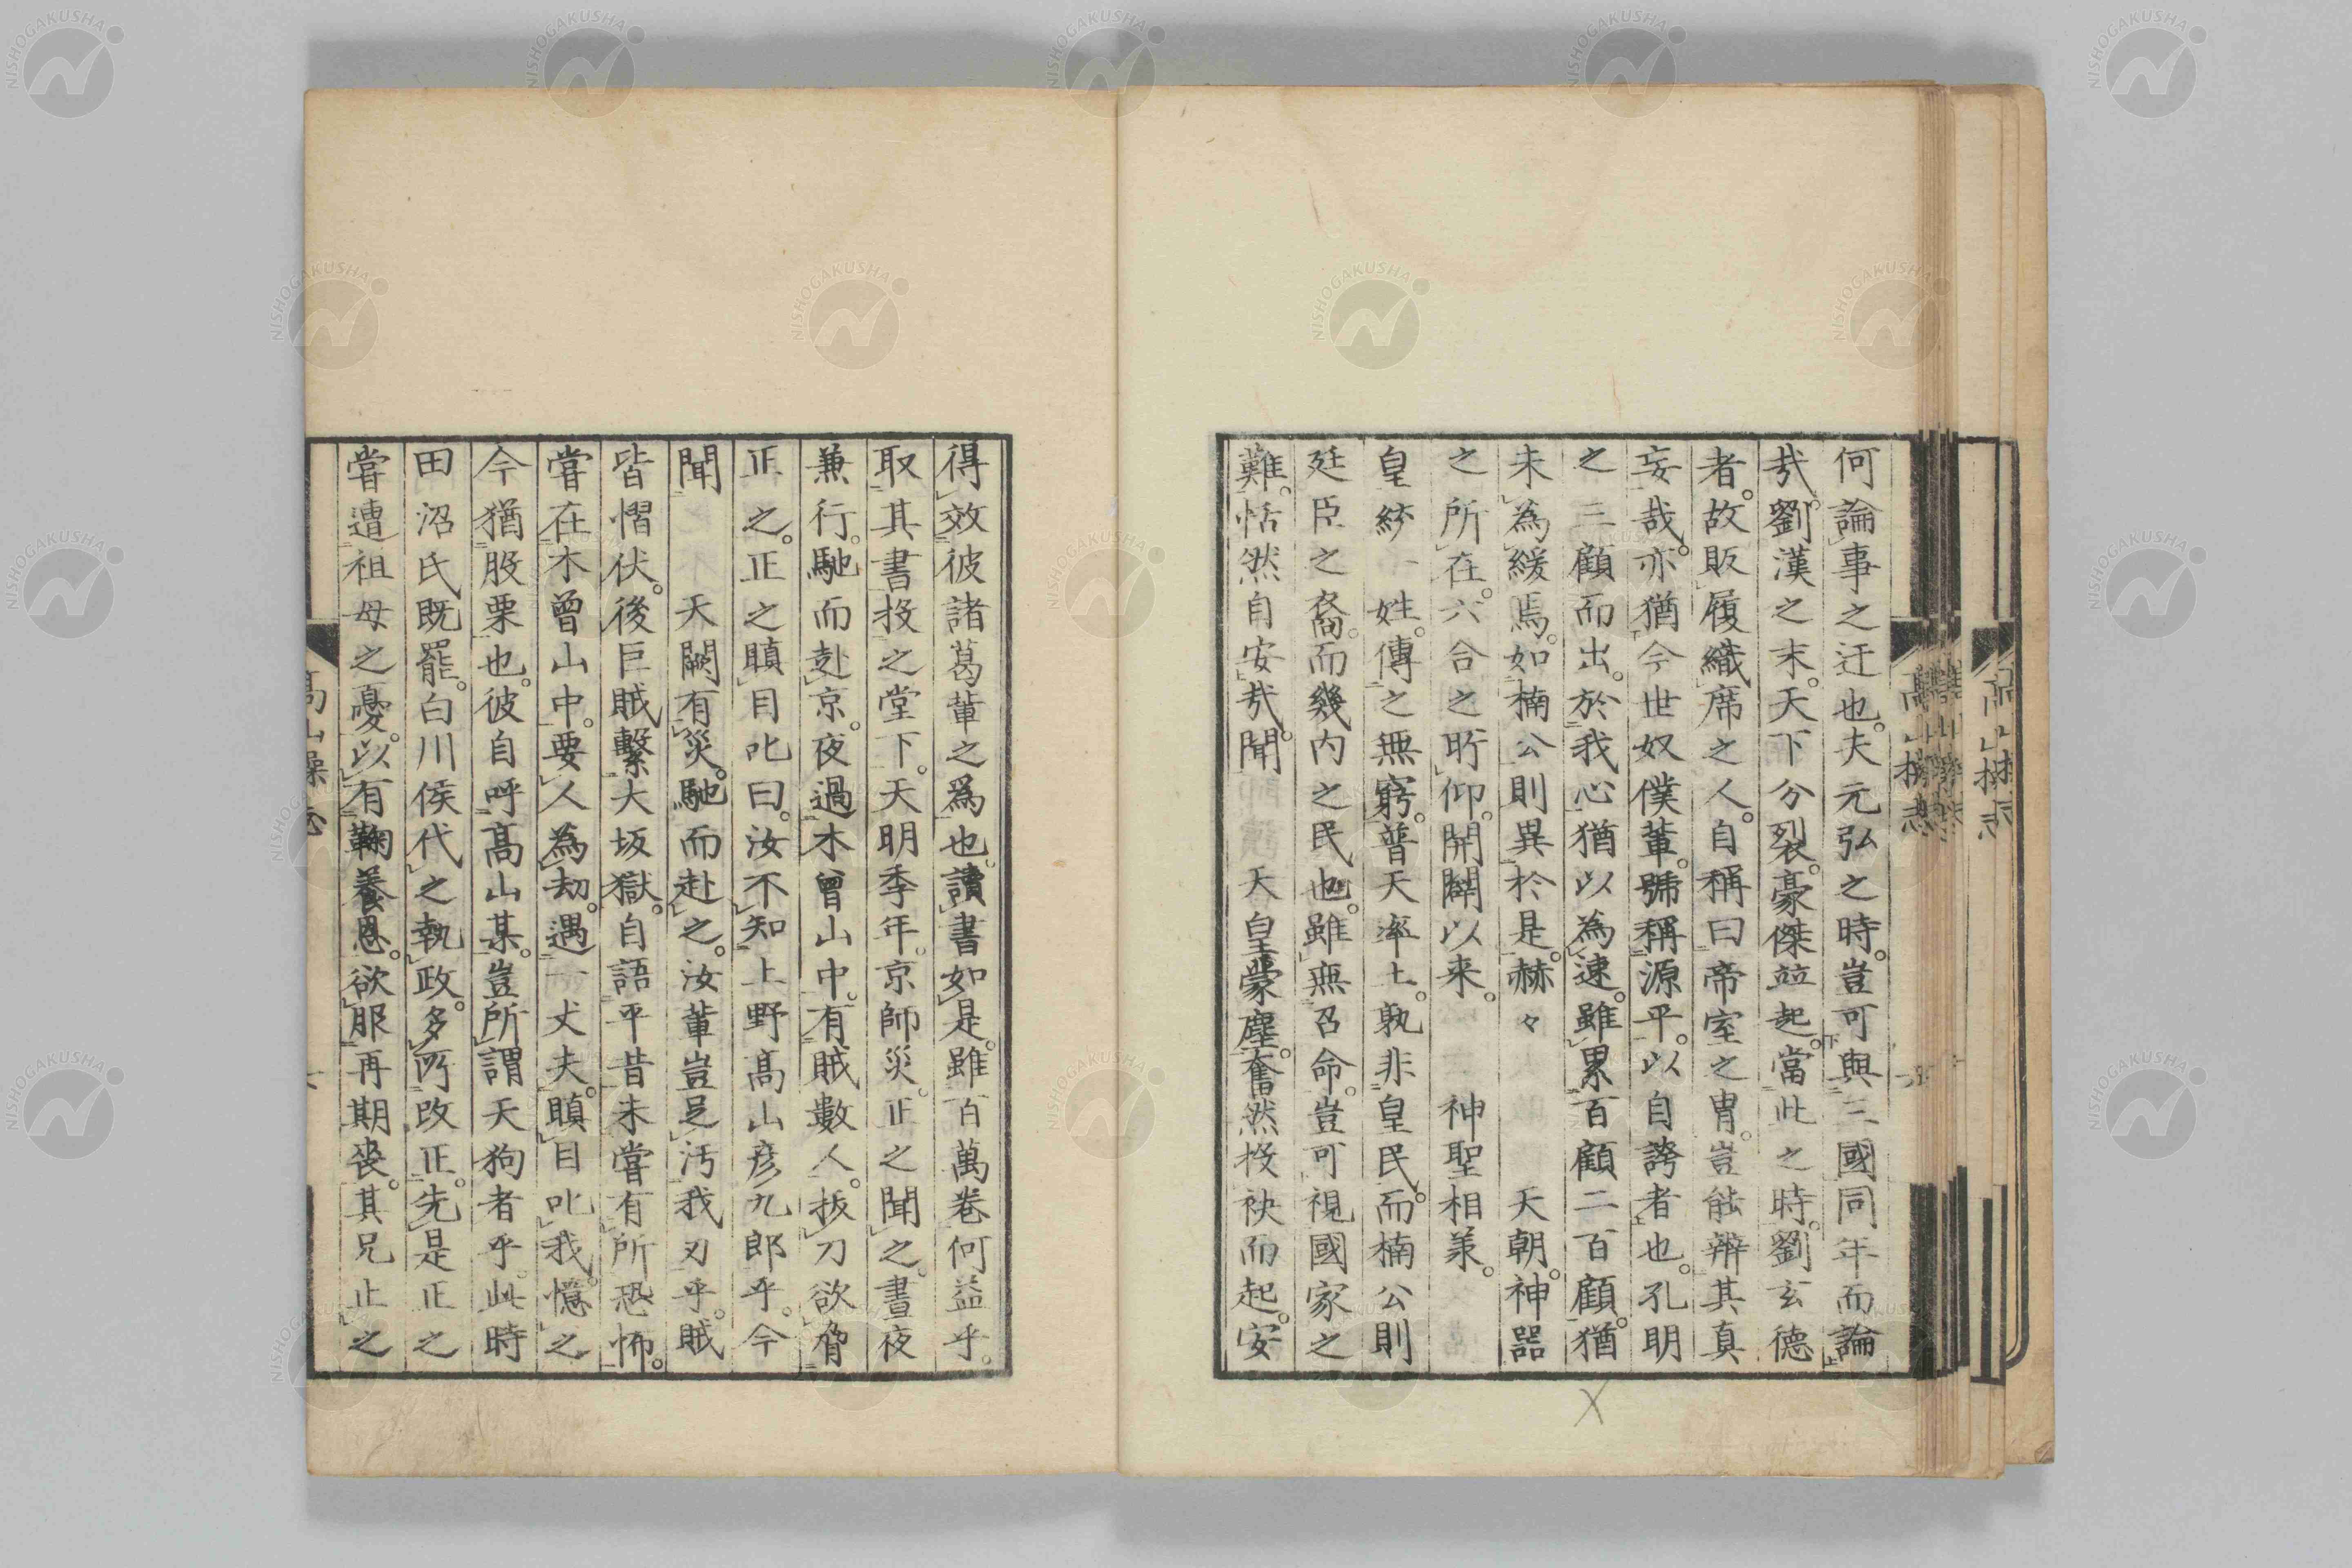 何論事之迂也。夫元弘之時。豈可與三國同年而論
哉。劉漢之末。天下分裂。豪傑竝起。當此之時。劉玄德
者。故販履織席之人。自稱曰帝室之冑。豈能辨其真
妄哉。亦猶今世奴僕輩。號稱源平。以自誇者也。孔明
之三顧而出。於我心猶以為速。雖累百顧二百顧。猶
未為緩焉。如楠公則異於是。赫々天朝。神器
之所在。六合之所仰。開闢以来。神聖相承。
皇統一姓。傳之無窮。普天率土。孰非皇民。而楠公則
廷臣之裔。而幾内之民也。雖無召命。豈可視國家之
難。恬然自安哉。聞天皇蒙塵。奮然投袂而起。安
得效彼諸葛輩之爲也。讀書如是。雖百萬巻何益乎。
取其書投之堂下。天明季年。京師災。正之聞之。晝夜
兼行。馳而赴京。夜過木曾山中。有賊數人。抜刀欲脅
正之。正之瞋目叱曰。汝不知上野髙山彦九郎乎。今
聞天闕有災。馳而赴之。汝輩豈足汚我刃乎。賊
皆慴伏。後巨賊繫大坂獄。自語平昔未嘗有所恐怖。
嘗在木曾山中。要人為劫。遇一丈夫。瞋目叱我。憶之
今猶股栗也。彼自呼髙山某。豈所謂天狗者乎。此時
田沼氏既罷。白川侯代之執政。多所改正。先是正之
嘗遭祖母之憂。以有鞠養恩。欲服再期喪。其兄止之
髙山操志